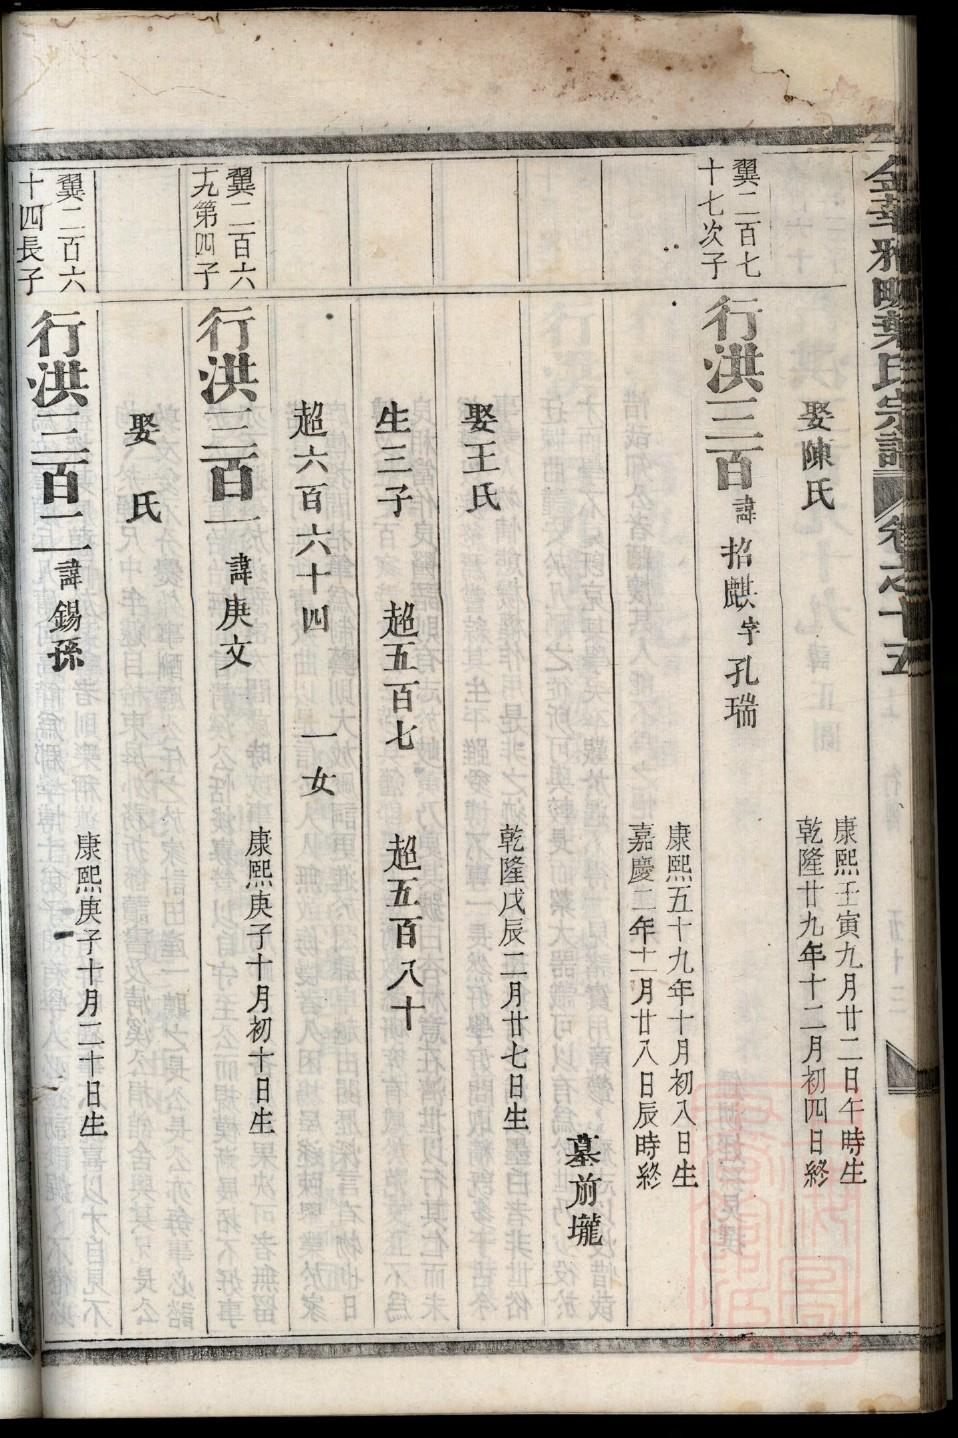 金華雅畈葉氏宗譜 卷之十五
娶陳氏
康熙壬寅九月廿二日午時生
乾隆廿九年十二月初四日終
翼二百七
十七次子
行洪三百 諱招麒字孔瑞
康熙五十九年十月初八日生
嘉慶二年十一月廿八日辰時終
墓前壠
娶王氏
乾隆戊辰二月廿七日生
生三子 超五百七 超五百八十
超六百六十四 一女
翼二百六
九第四子
行洪三百一 諱庚文
康熙庚子十月初十日生
娶 氏
翼二百六
十四長子
行洪三百二 諱錫孫
康熙庚子十月二十日生